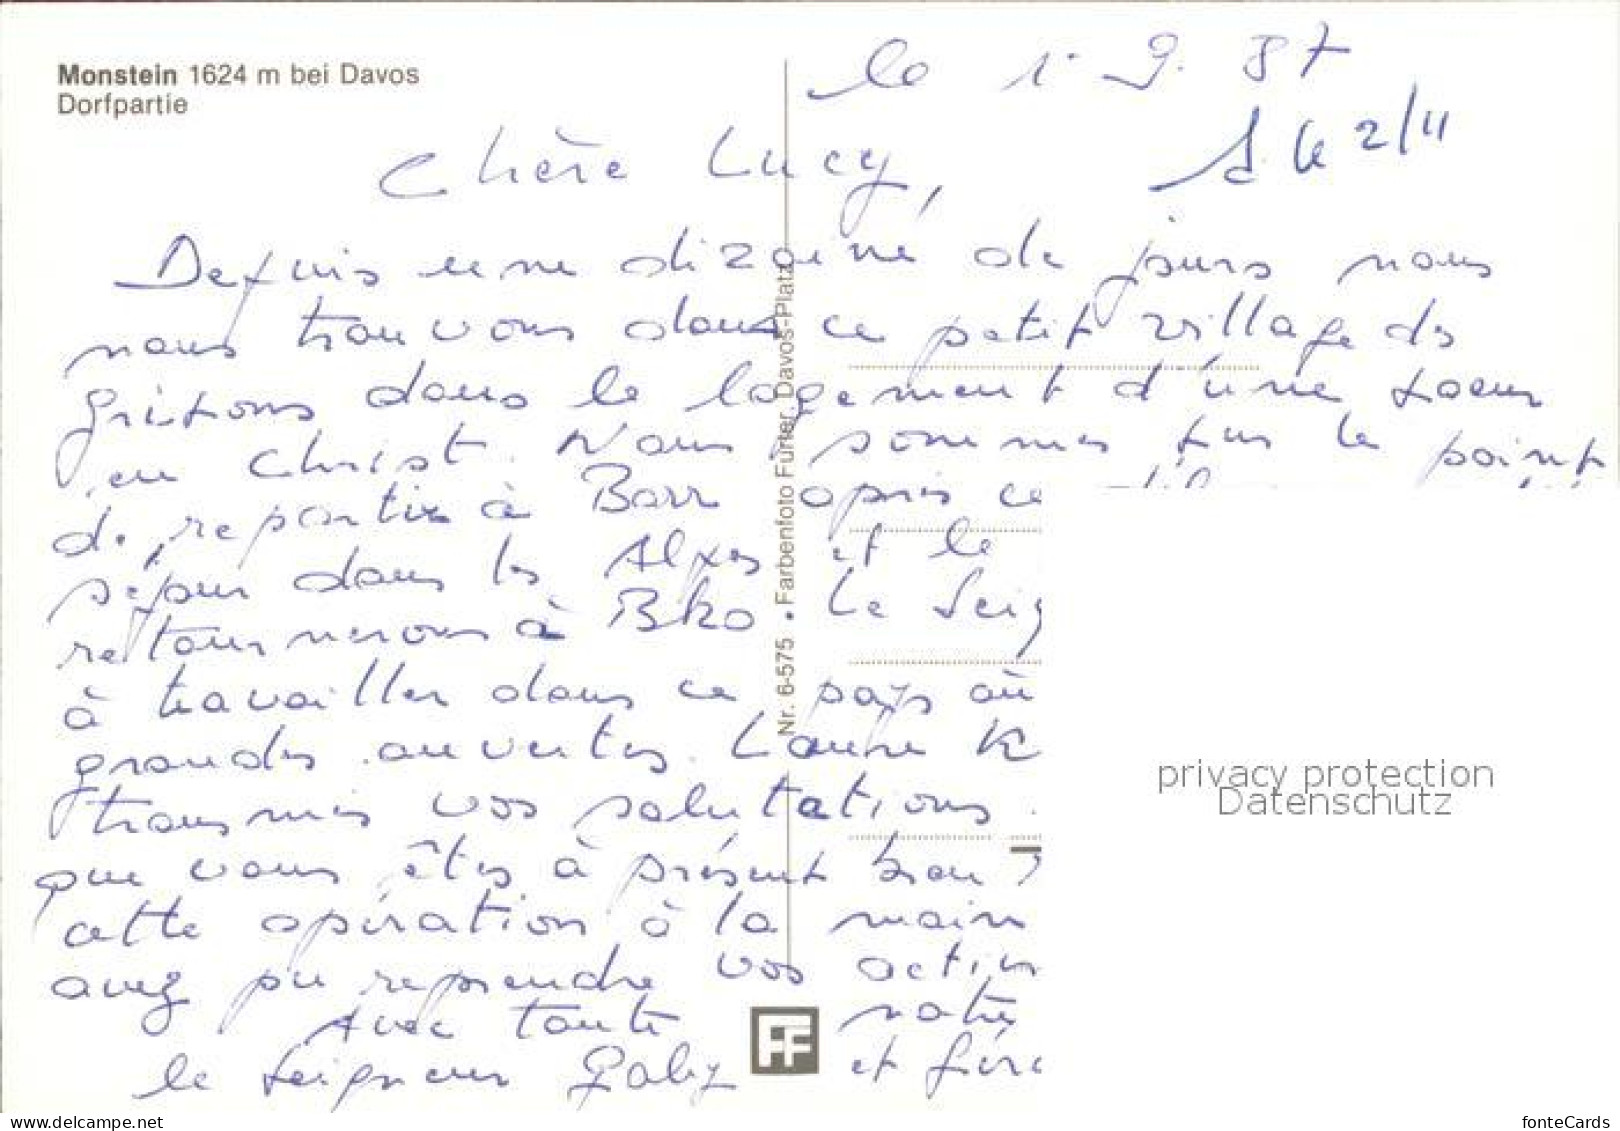 Monstein 1624 m bei Davos
Dorfpartie
le 1. 9. 87
2/11
Chère Lucy,
Depuis une dizaine de jours nous
nous trouvons dans ce petit village des
grisons dans le logement d'une soeur
en Christ. Nous sommes sur le point
de repartir à Barr après ce
séjour dans les Alpes et le
retournerons à Bko. Le Seig
à travailler dans ce pays où
grandes ouvertes. Laure K
transmis vos salutations.
que vous êtes à présent
cette opération à la main
avez pu reprendre vos activ
Avec toute notre
le Seigneur Gaby et Géra
Nr. 6-575 • Farbenfoto Furter, Davos-Platz
FF
privacy protection
Datenschutz
www.delcampe.net
fonteCards